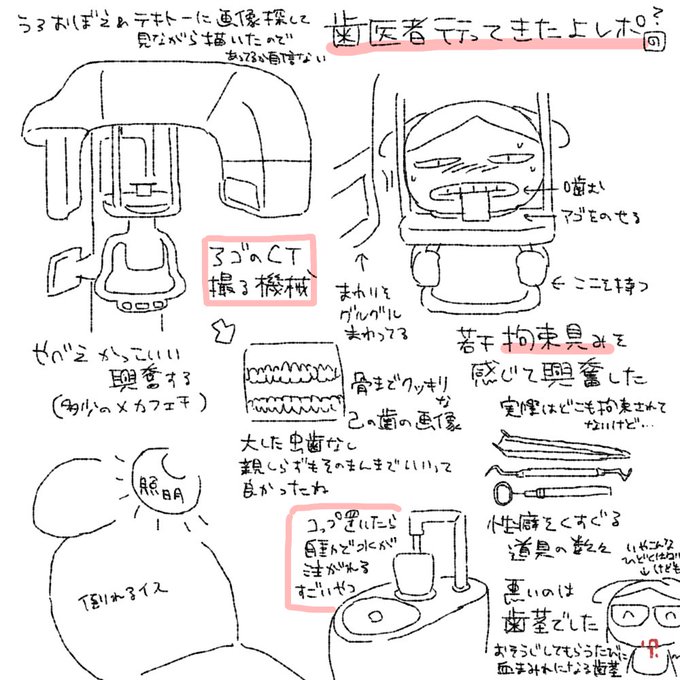 うろおぼえ&テキトーに画像探して
見ながら描いたので
あってるか自信ない
歯医者行ってきたよレポ?
の
噛む
アゴをのせる
ここを持つ
まわりを
グルグル
まわってる
アゴのCT
撮る機械
やべえかっこいい
興奮する
(多少のメカフェチ)
若干拘束具みを
感じて興奮した
実際はどこも拘束されて
ないけど…
骨までクッキリ
な
己の歯の画像
大した虫歯なし
親しらずもそのまんまでいいって
良かったね
照明
倒れるイス
コップ置いたら
自動で水が
注がれる
すごいやつ
性癖をくすぐる
道具の数々
いやこんな
ひどくはない
けども
悪いのは
歯茎でした
おそうじしてもらうたびに
血まみれになる歯茎